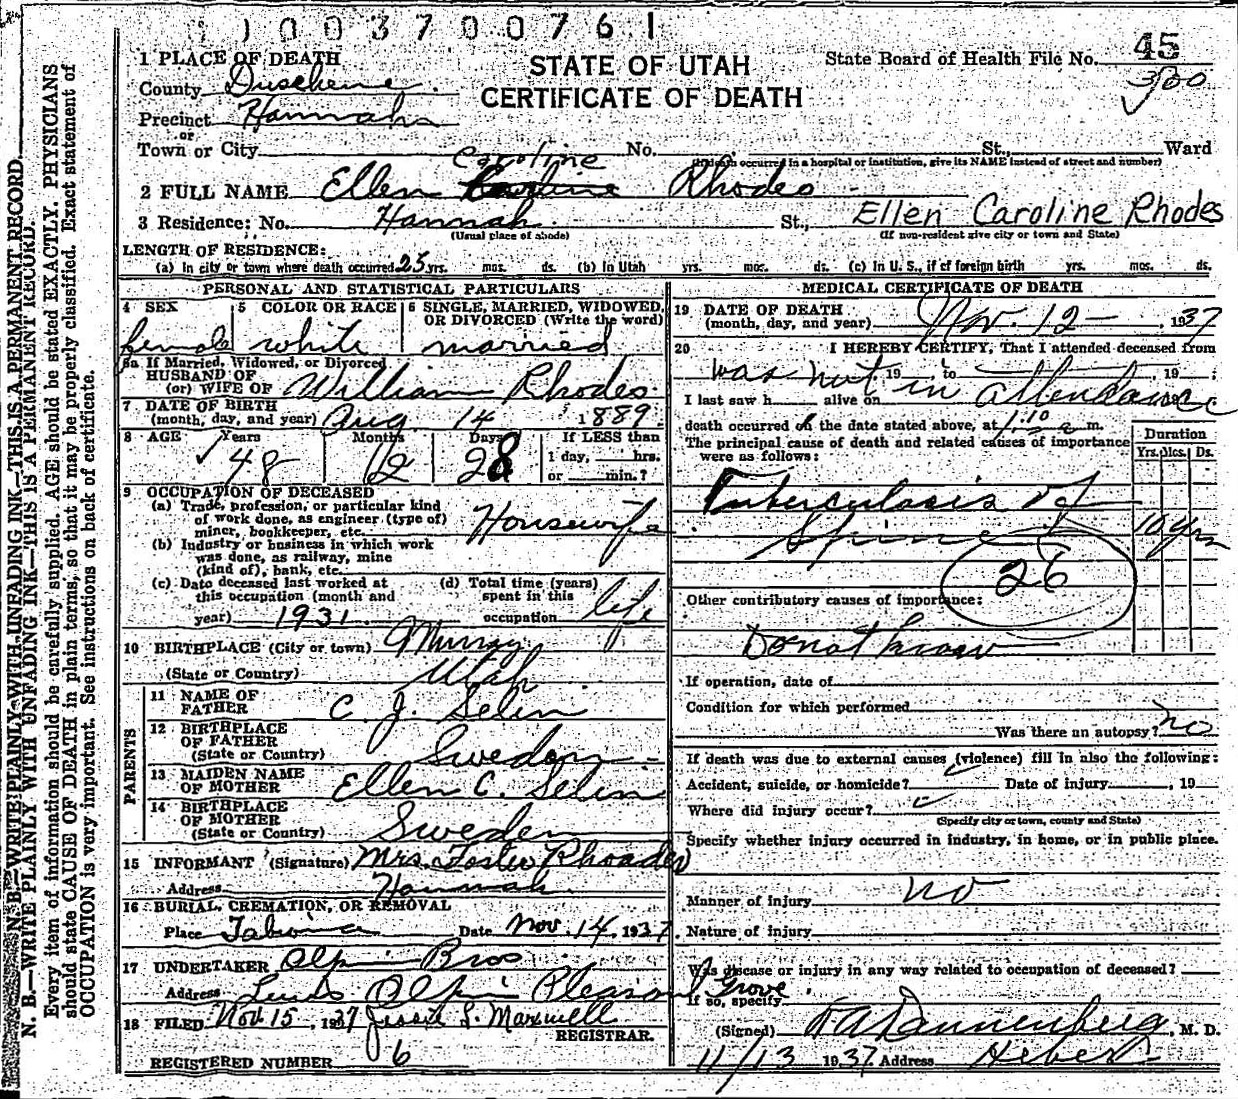 1003700761
STATE OF UTAH
CERTIFICATE OF DEATH
State Board of Health File No. 45
300
1 PLACE OF DEATH
County Duschene
Precinct Hannah
or
Town or City No. St., Ward
(If death occurred in a hospital or institution, give its NAME instead of street and number)
Caroline
2 FULL NAME Ellen Rhodes
3 Residence: No. Hannah St., Ellen Caroline Rhodes
(Usual place of abode) (If non-resident give city or town and State)
LENGTH OF RESIDENCE:
(a) In city or town where death occurred 25 yrs. mos. ds. (b) In Utah yrs. mos. ds. (c) In U. S., if of foreign birth yrs. mos. ds.
PERSONAL AND STATISTICAL PARTICULARS
4 SEX female
5 COLOR OR RACE white
6 SINGLE, MARRIED, WIDOWED, OR DIVORCED (Write the word) married
5a If Married, Widowed, or Divorced
HUSBAND OF
(or) WIFE OF William Rhodes
7 DATE OF BIRTH
(month, day, and year) Aug. 14 1889.
8 AGE Years Months Days If LESS than
48 2 28 1 day, hrs.
or min.?
9 OCCUPATION OF DECEASED
(a) Trade, profession, or particular kind
of work done, as engineer (type of)
miner, bookkeeper, etc. Housewife
(b) Industry or business in which work
was done, as railway, mine
(kind of), bank, etc.
(c) Date deceased last worked at
this occupation (month and
year) 1931
(d) Total time (years)
spent in this
occupation life
10 BIRTHPLACE (City or town) Murray
(State or Country) Utah
PARENTS
11 NAME OF
FATHER C. J. Selin
12 BIRTHPLACE
OF FATHER
(State or Country) Sweden
13 MAIDEN NAME
OF MOTHER Ellen C. Selin
14 BIRTHPLACE
OF MOTHER
(State or Country) Sweden
15 INFORMANT (Signature) Mrs. Foster Rhoades
Address Hannah
16 BURIAL, CREMATION, OR REMOVAL
Place Tabiona Date Nov. 14, 1937
17 UNDERTAKER Olpin Bros
Address Lewis Olpin Pleasant Grove.
18 FILED Nov. 15, 1937 Jessie S. Maxwell
REGISTRAR.
REGISTERED NUMBER 6
MEDICAL CERTIFICATE OF DEATH
19 DATE OF DEATH
(month, day, and year) Nov. 12 1937
20 I HEREBY CERTIFY, That I attended deceased from
was not 19 to in attendance, 19 ;
I last saw h alive on
death occurred on the date stated above, at 1:10 a m.
The principal cause of death and related causes of importance
were as follows:
Duration
Yrs. Mos. Ds.
Tuberculosis of
Spine 10 yrs
26
Other contributory causes of importance:
Do not know
If operation, date of
Condition for which performed
Was there an autopsy? no
If death was due to external causes (violence) fill in also the following:
Accident, suicide, or homicide? Date of injury , 19
Where did injury occur?
(Specify city or town, county and State)
Specify whether injury occurred in industry, in home, or in public place.
no
Manner of injury
Nature of injury
Was disease or injury in any way related to occupation of deceased?
If so, specify
(Signed) Dannenberg, M. D.
11/13 1937 Address Heber
N. B.—WRITE PLAINLY WITH UNFADING INK—THIS IS A PERMANENT RECORD
N. B.—WRITE PLAINLY WITH UNFADING INK—THIS IS A PERMANENT RECORD.
Every item of information should be carefully supplied. AGE should be stated EXACTLY. PHYSICIANS
should state CAUSE OF DEATH in plain terms, so that it may be properly classified. Exact statement of
OCCUPATION is very important. See instructions on back of certificate.